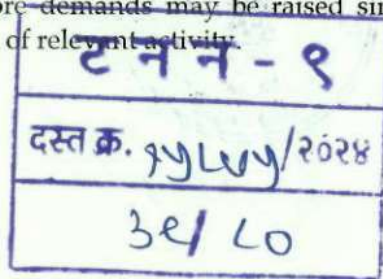 demands may be raised
of relevant activity.
ट न न - ९
दस्त क्र. /२०२४
३९/ ८०